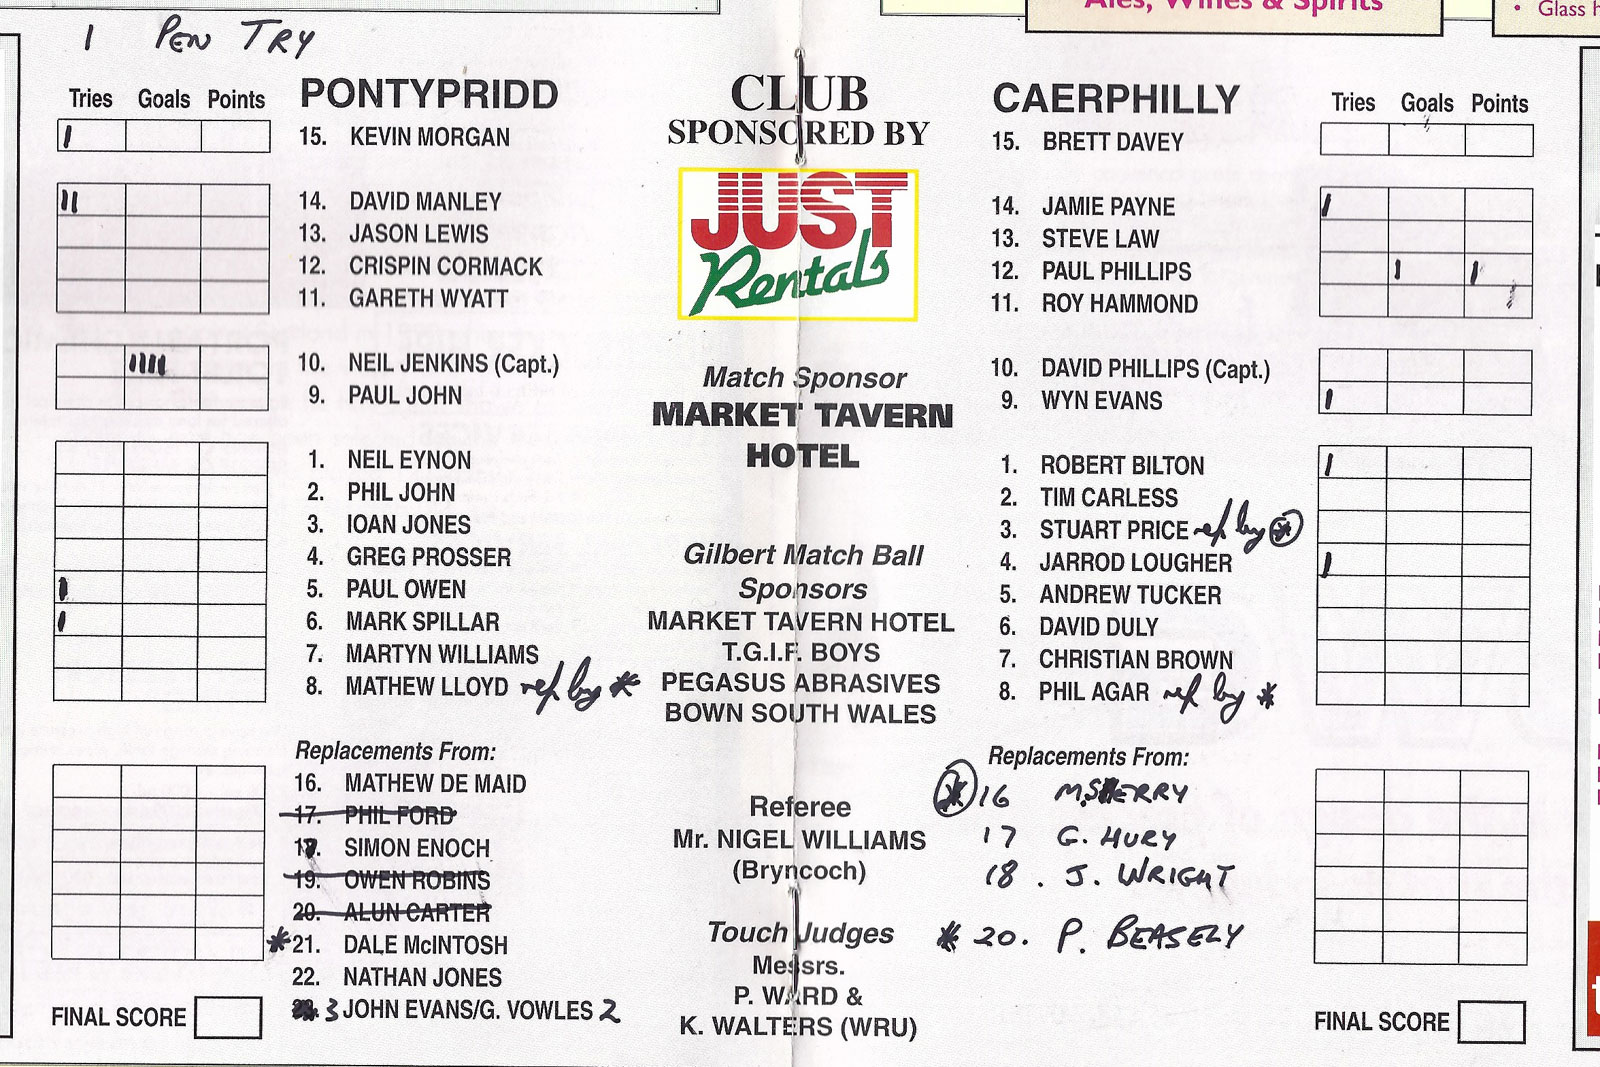 Ales, Wines & Spirits
• Glass
1 PEN TRY
Tries Goals Points
PONTYPRIDD
1 15. KEVIN MORGAN
11 14. DAVID MANLEY
13. JASON LEWIS
12. CRISPIN CORMACK
11. GARETH WYATT
1111 10. NEIL JENKINS (Capt.)
9. PAUL JOHN
1. NEIL EYNON
2. PHIL JOHN
3. IOAN JONES
4. GREG PROSSER
1 5. PAUL OWEN
1 6. MARK SPILLAR
7. MARTYN WILLIAMS
8. MATHEW LLOYD rep by *
Replacements From:
16. MATHEW DE MAID
17. PHIL FORD
18. SIMON ENOCH
19. OWEN ROBINS
20. ALUN CARTER
* 21. DALE McINTOSH
22. NATHAN JONES
3 JOHN EVANS/G. VOWLES 2
FINAL SCORE
CLUB
SPONSORED BY
JUST
Rentals
Match Sponsor
MARKET TAVERN
HOTEL
Gilbert Match Ball
Sponsors
MARKET TAVERN HOTEL
T.G.I.F. BOYS
PEGASUS ABRASIVES
BOWN SOUTH WALES
Referee
Mr. NIGEL WILLIAMS
(Bryncoch)
Touch Judges
Messrs.
P. WARD &
K. WALTERS (WRU)
CAERPHILLY
Tries Goals Points
15. BRETT DAVEY
14. JAMIE PAYNE 1
13. STEVE LAW
12. PAUL PHILLIPS 1 1
11. ROY HAMMOND
10. DAVID PHILLIPS (Capt.)
9. WYN EVANS 1
1. ROBERT BILTON 1
2. TIM CARLESS
3. STUART PRICE rep by *
4. JARROD LOUGHER 1
5. ANDREW TUCKER
6. DAVID DULY
7. CHRISTIAN BROWN
8. PHIL AGAR rep by *
Replacements From:
* 16 M. SHERRY
17 G. HURY
18. J. WRIGHT
* 20. P. BEASELY
FINAL SCORE